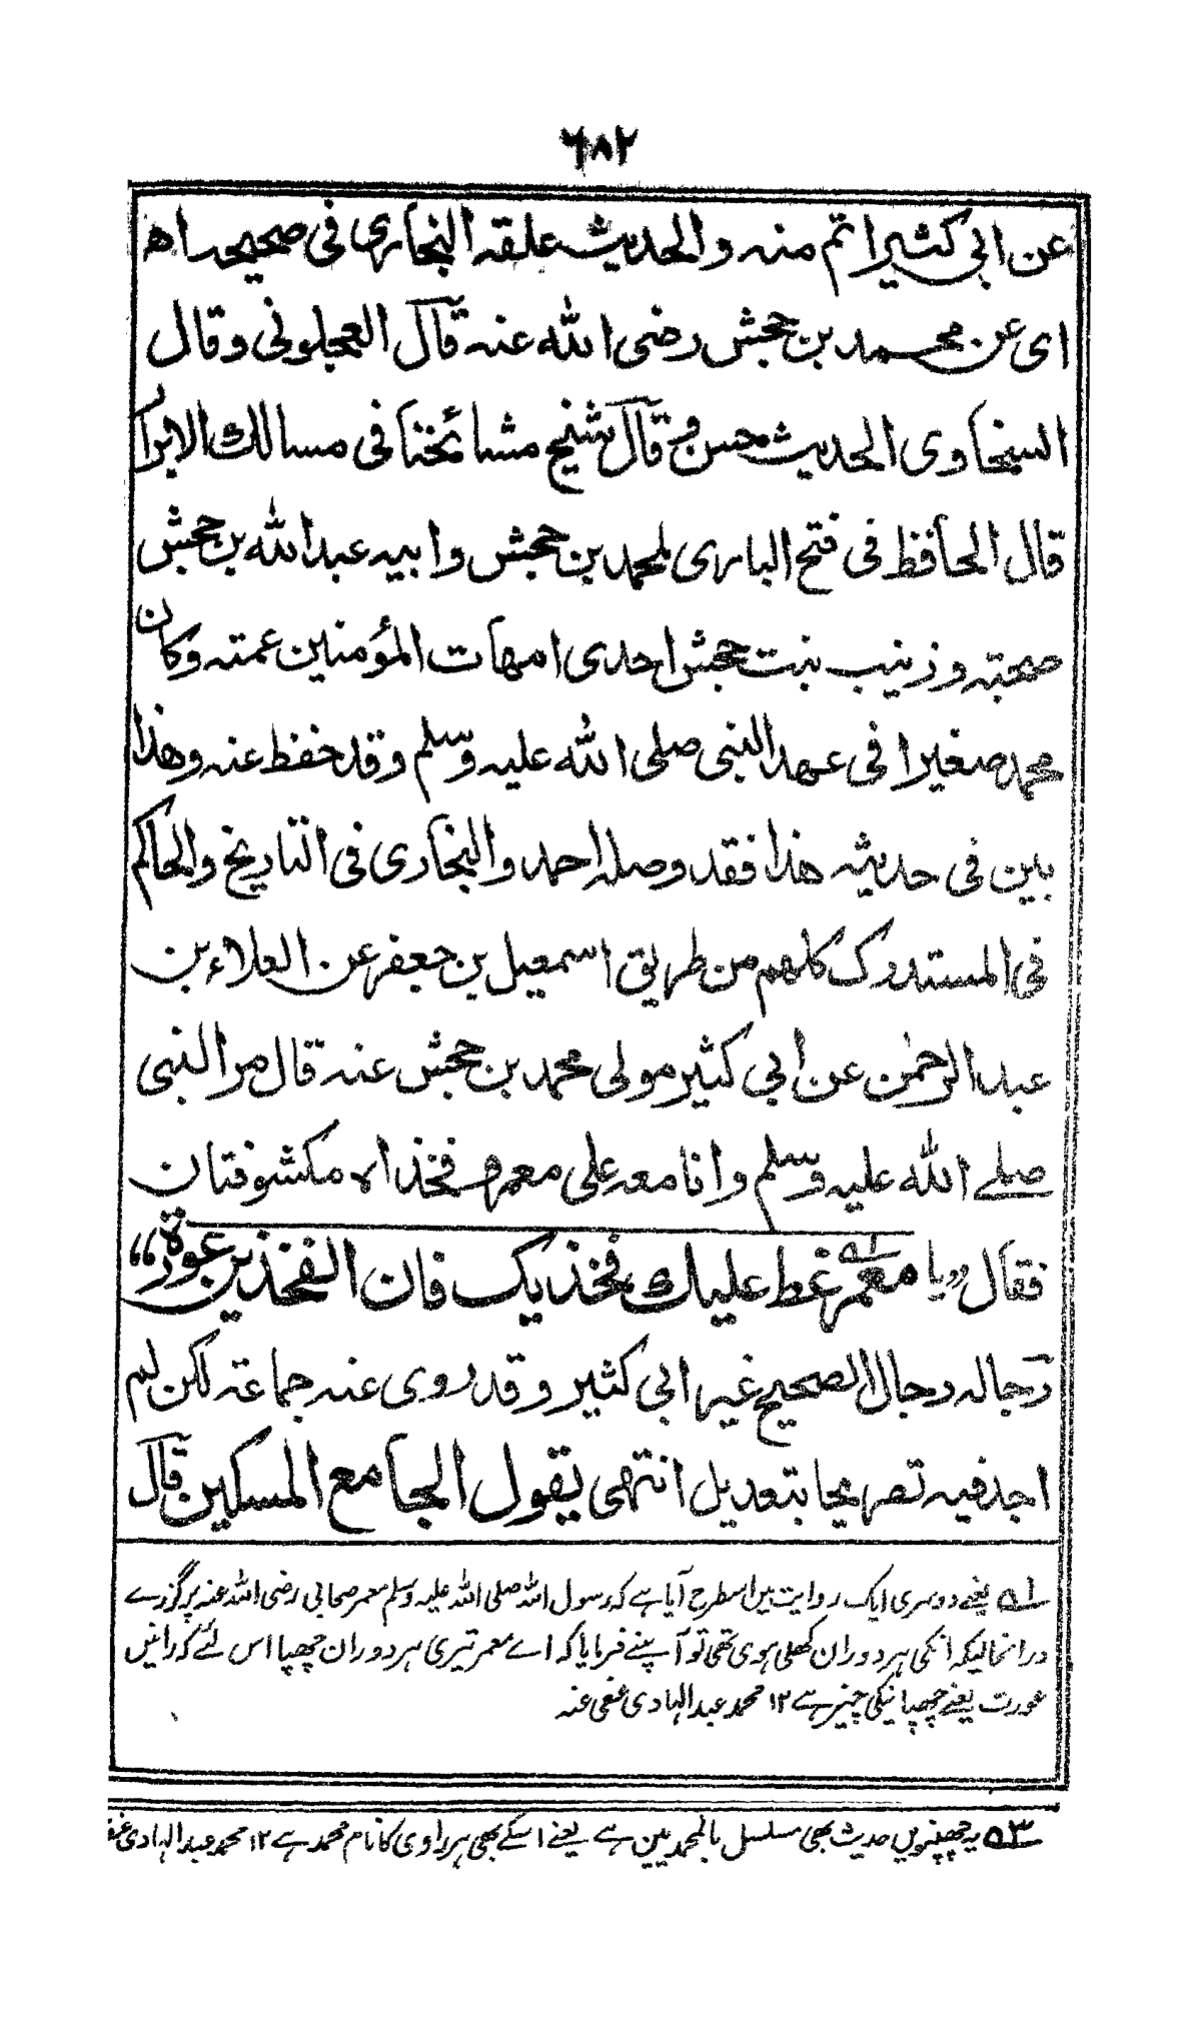 ٦٨٢
عن ابي كثير اتم منه والحديث علقه البخاري في صحيحه اه
اى عن محمد بن جحش رضى الله عنه قال العجلوني وقال
السخاوى الحديث حسن وقال شيخ مشائخنا في مسالك الابرار
قال الحافظ فى فتح البارى لمحمد بن جحش وابيه عبدالله بن جحش
صحبته وزينب بنت جحش احدى امهات المؤمنين عمته وكان
محمد صغيرا فى عهد النبى صلى الله عليه وسلم وقد حفظ عنه وهذا
بين فى حديثه هذا فقد وصله احمد والبخارى فى التاريخ والحاكم
فى المستدرك كلهم من طريق اسمعيل بن جعفر عن العلاء بن
عبدالرحمن عن ابي كثير مولى محمد بن جحش عنه قال مر النبى
صلے الله عليه وسلم وانا معه على معمر وفخذاه مكشوفتان
فقال ,,يا معمر غط عليك فخذيك فان الفخذين عورة،،
رجاله رجال الصحيح غير ابي كثير وقد روى عنه جماعة لكن لم
اجد فيه تصريحا بتعديل انتهى يقول الجامع المسكين قال
ـه١ یعنے دوسری ایک روایت میں اسطرح آیا ہے کہ رسول اللہ صلی اللہ علیہ وسلم معمر صحابی رضی اللہ عنہ پر گزرے
درانحالیکہ انکی ہر دو ران کھلی ہوی تھی تو آپنے فرمایا کہ اے معمر تیری ہر دو ران چھپا اس لئے کہ رانیں
عورت یعنے چھپانیکی چیز ہے ١٢ محمد عبدالہادی عفی عنہ
ـه٣ یہ چھپنویں حدیث بھی مسلسل بالمحمدیین ہے یعنے اسکے بھی ہر راوی کا نام محمد ہے ١٢ محمد عبدالہادی عف